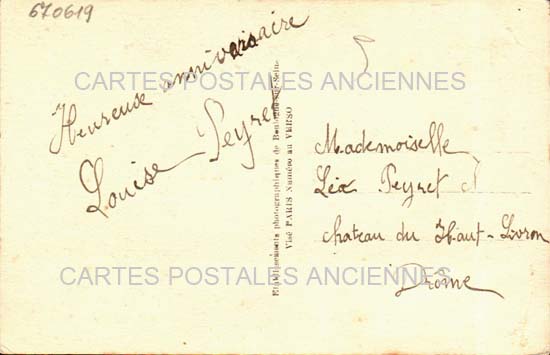 670619
Heureuse anniversaire
Louise Peyret
CARTES POSTALES ANCIENNES
Etablissements photographiques de Boulogne-sur-Seine
Visé PARIS Numéro au VERSO
Mademoiselle
Léa Peyret
château du Haut-Livron
Drôme
CARTES POSTALES ANCIENNES